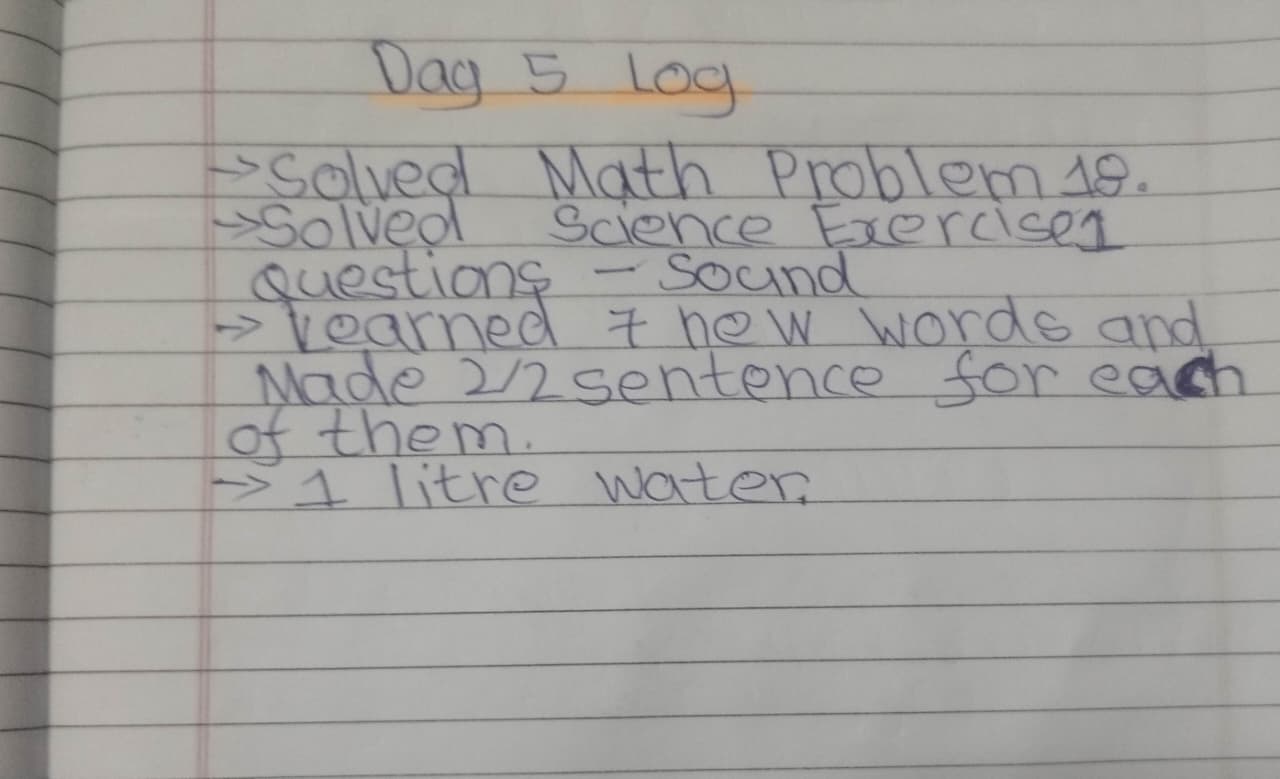 Day 5 Log
→ Solved Math Problem 18.
→ Solved Science Exercise 1
questions - Sound
→ Learned 7 new words and
Made 2/2 sentence for each
of them.
→ 1 litre water.